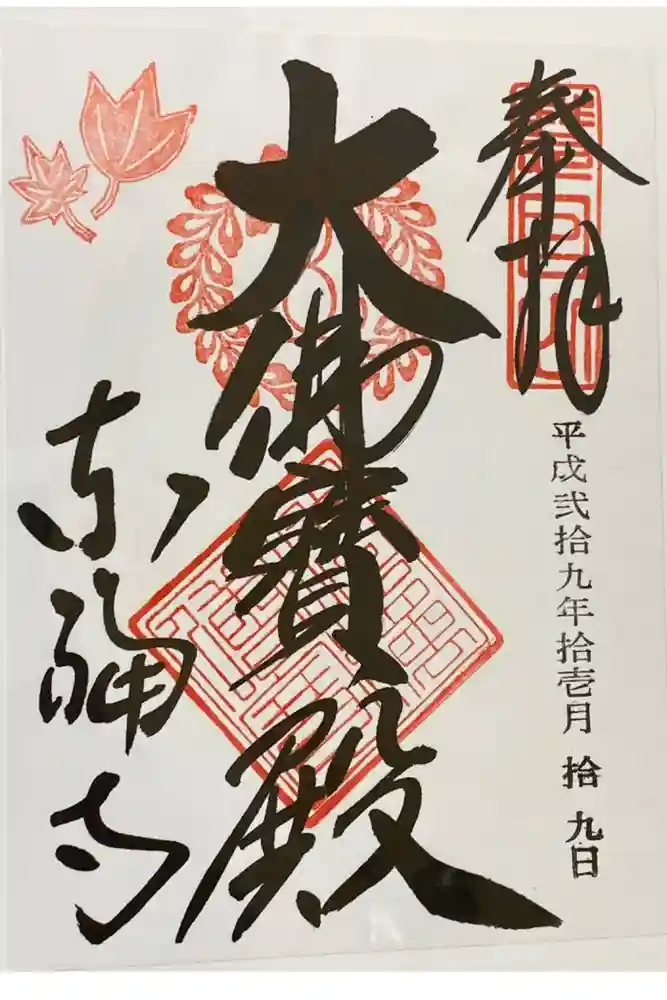 奉拝
平成弐拾九年拾壱月拾九日
大佛寳殿
東福寺